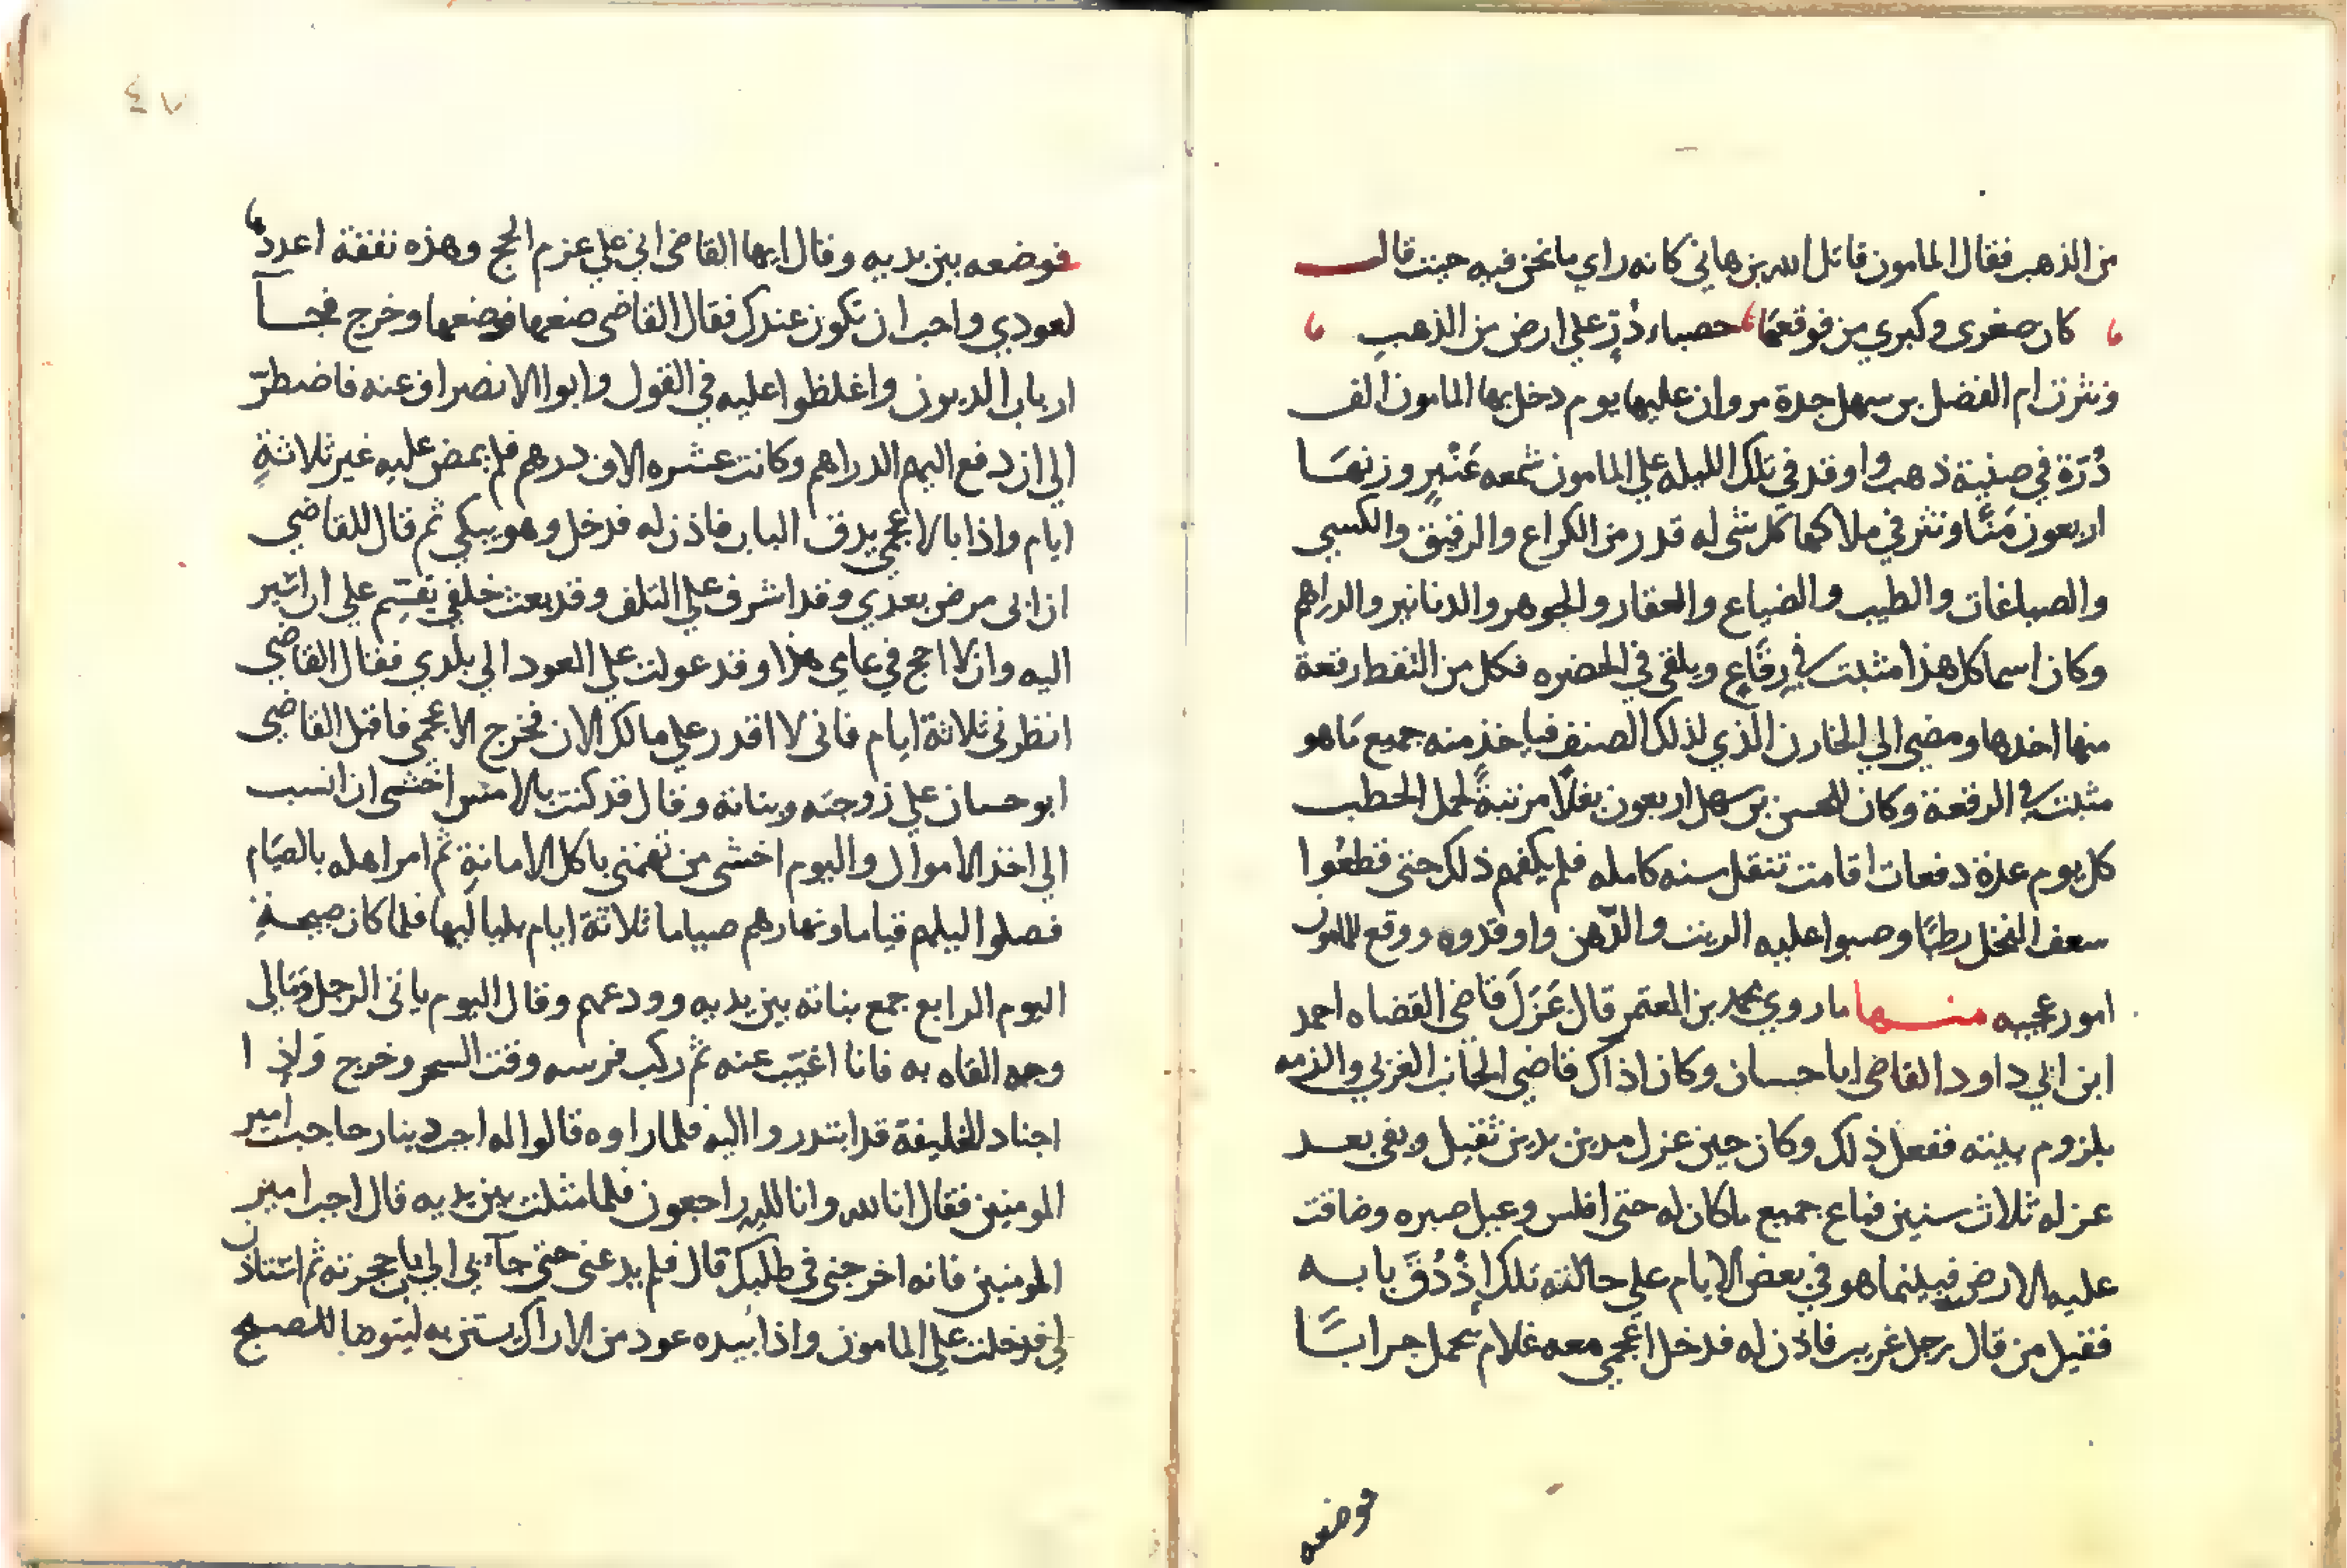 من الذهب فقال المامون قاتل الله بن هاني كانه راي ما نحن فيه حيث قال
كان صغرى وكبري من فوقعها حصباء دُرّ علي ارض من الذهب
ونثرت ام الفضل بن سهل جدة مروان عليها يوم دخل بها المامون الف
دُرّة في صنية ذهب واوقد في تلك الليله علي المامون شمعه عَنْبرٍ وزنها
اربعون مَنًّا ونثر في ملاكها كل شى له قدر من الكراع والرقيق والكسي
والصباغات والطيب والضياع والعقار والجوهر والدنانير والدراهم
وكان اسما كل هذا مثبت في رِقَاعٍ ويلقي في الحضره فكل من التقط رقعة
منها اخدها ومضي الي الخازن الذي لذلك الصنف فياخذ منه جميع مَاهو
مثبت في الرقعة وكان للحسن بن سهل اربعون بغلًا مرتبةً لحمل الحطب
كل يوم عدة دفعات اقامت تنقل سنه كامله فلم يكفهم ذلك حتى قطعُوا
سعف النخل رطبًا وصبوا عليه الزيت والدّهن واوقدوه ووقع للمامون
امور عجيبه منها ما روي محمد بن المعتمر قال عَزَلَ قاضى القضاه احمد
ابن ابي داود القاضى ابا حسان وكان اذ اك قاضي الجانب الغربي والزمه
بلزوم بيته ففعل ذلك وكان حين عزل مدين بدين ثقيل وبقي بعد
عزله ثلاث سنين فباع جميع ما كان له حتى افلس وعيل صبره وضاقت
عليه الارض فبينما هو في بعض الايام علي حالته تلك اِذْ دُقَّ بابه
فقيل من قال رجل غريب فاذن له فدخل اعجمي معه غلام يحمل جرابًا
فوضعه
٤٧
فوضعه بين يديه وقال ايها القاضى اني علي عزم الحج وهذه نفقة اعدد
لعودي واحب ان تكون عندك فقال القاضى ضعها فوضعها وخرج فجآ
ارباب الديون واغلظوا عليه في القول وابوا الانصراف عنه فاضطرّ
الي ان دفع اليهم الدراهم وكانت عشره الاف درهم فلم يمض عليه غير ثلاثةِ
ايام واذا بالاعجمي يدق الباب فاذن له فدخل وهو يبكي ثم قال للقاضي
ان ابى مرض بعدي وقد اشرف علي التلف وقد بعث خلفي يقسّم علي ان اسير
اليه وان لا احج في عامي هذا وقد عولت علي العود الي بلدي فقال القاضي
انظرنى ثلاثة ايام فانى لا اقدر علي مالك الان فخرج الاعجمي فاقبل القاضى
ابو حسان علي زوجته وبناته وقال قد كنت بالامس اخشى ان انسب
الي اخذ الاموال واليوم اخشى من تهمتى باكل الامانةِ ثم امر اهله بالصيَام
فصلوا ليلهم قياما ونهارهم صياما ثلاثة ايام بلياليها فلما كان صبيحةِ
اليوم الرابع جمع بناته بين يديه وودعهم وقال اليوم ياتى الرجل وَمَالي
وجه القاه به فانا اغيّب عنه ثم ركب فرسه وقت السحر وخرج وَاِذ ا
اجناد الخليفة قد ابتدروا اليه فلما راوه قالوا له اجردينار حاجب امير
المومنين فقال انا لله وانا لله راجعون فلما مثلت بين يديه قال اجب امير
المومنين فانه اخرجنى فى طلبك قال فلم يدعنى حتى جآء بي الي باب حجرته ثم استاذن
لي فدخلت علي المامون واذا بيده عود من الاراك يستن به ليتوضا للصبح